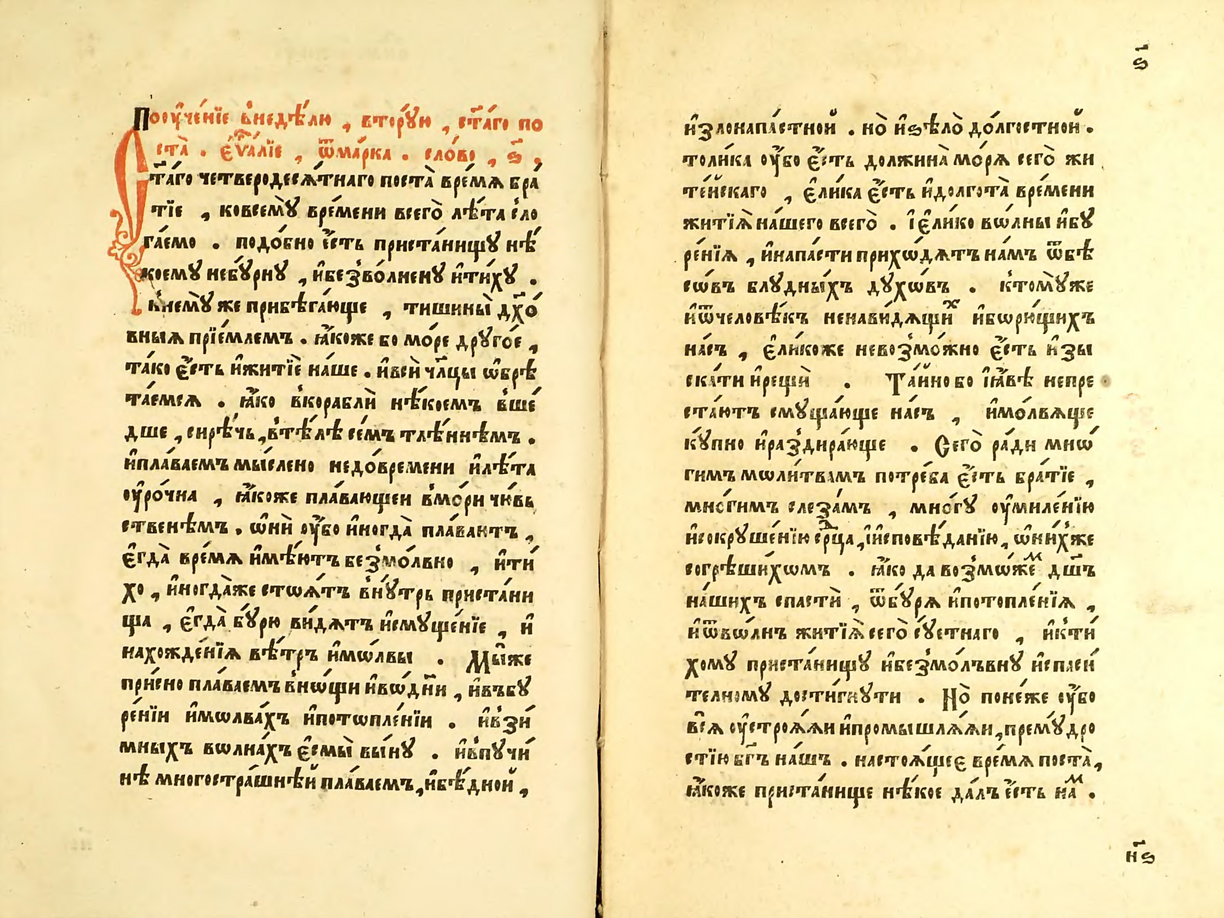 Пооуче́нїе внедѣ́лю , втору́ю , ст҃а́го по
ста̀ . є҆ѵⷢ҇алїе , ѿма́рка . сло́во , ѕ҃ ,
Ст҃а́го четвероdesѧ́тнаго поста̀ вре́мѧ бра́
тїе , ковсемꙋ̀ вре́мени всего̀ лѣ́та сло
га́емо . подо́бно є҆́сть приста́нищꙋ нѣ́
коемꙋ небꙋ́рнꙋ , и҆безво́лненꙋ и҆ти́хꙋ .
кнемꙋ́же прибѣга́юще , тишины̀ дх҃о́
вныѧ прїе́млемъ . ꙗ҆́коже бо мо́ре дрꙋго́е ,
та́ко є҆́сть и҆житїѐ на́ше . и҆вси́ чл҃цы ѡ҆брѣ
та́емсѧ . ꙗ҆́ко вкораблѝ нѣ́коемъ вшє́
дше , си́рѣчь , втѣ́лѣ се́мъ тлѣ́ннѣмъ .
и҆пла́ваемъ мы́слено недовре́мени и҆лѣ́та
оу҆ро́чна , ꙗ҆́коже пла́вающеи вмо́ри чю́вь
ственѣмъ . ѡ҆нѝ оу҆́бо и҆ногда̀ пла́ваютъ ,
є҆гда̀ вре́мѧ и҆мѣ́ютъ безмо́лвно , и҆ти́
хо , и҆ногда́же стоѧ́тъ внꙋ́трь приста́ни
ща , є҆гда̀ бꙋ́рю ви́дѧтъ и҆смꙋще́нїе , и҆
нахожде́нїѧ вѣ́тръ и҆мо́лвы . Мы́же
при́сно пла́ваемъ внѡ́щи и҆вѡдни̑ , и҆въбꙋ́
ренїи и҆мѡлва́хъ и҆потѡпле́нїи . и҆взи́
мныхъ вѡлна́хъ є҆смы̀ вы́нꙋ . и҆впꙋчи́
нѣ многостра́шнѣй пла́ваемъ , и҆бѣ́дной ,
ѕ҃
и҆злонапа́стной . но̀ и҆ѕѣлѡ̀ долгостной .
толи́ка оу҆́бо є҆́сть должина̀ мо́рѧ сегѡ̀ жи
те́йскаго , є҆ли́ка є҆́сть и҆долгота̀ вре́мени
житїѧ̀ на́шего всегѡ̀ . і҆є҆ли́ко вѡлны̀ и҆бꙋ́
ренїѧ , и҆напа́сти прихѡ́дѧтъ на́мъ ѿбѣ́
сѡвъ блꙋ́дныхъ дꙋ́хѡвъ . ктомꙋ́же
и҆ѿчеловѣ́къ ненави́дѧщиⷯ и҆бѡрю́щихъ
на́съ , є҆ли́коже невозмо́жно є҆́сть и҆зы
ска́ти и҆рещѝ . Та́йно бо і҆ꙗ҆́вѣ непре
стаю́тъ смꙋща́юще на́съ , и҆мо́лвѧще
кꙋ́пно и҆раздира́юще . Сегѡ̀ ра́ди мнѡ́
гимъ мѡли́твамъ потре́ба є҆́сть бра́тїе ,
мно́гимъ слеза́мъ , мно́гꙋ оу҆миле́нїю
и҆сокрꙋше́нїю ср҃ца , і҆и҆сповѣ́данїю , ѡ҆ни́хже
согрѣши́хѡмъ . ꙗ҆́ко да возмо́жеⷨ дш҃ъ
на́шихъ спастѝ , ѿбꙋ́рѧ и҆потопле́нїѧ ,
и҆ѿвѡ́лнъ житїѧ̀ сегѡ̀ сꙋ́етнаго , и҆кти́
хомꙋ приста́нищꙋ и҆безмо́лъвнꙋ и҆спаси́
телномꙋ дости́гнꙋти . Но̀ поне́же оу҆́бо
всѧ̀ оу҆строѧ́ѧи и҆промышлѧ́ѧи , премꙋ́дро
стїю бг҃ъ на́шъ . настоѧ́щеє вре́мѧ поста̀ ,
ꙗ҆́коже приста́нище нѣ́кое да́лъ є҆́сть наⷨ .
нѕ҃